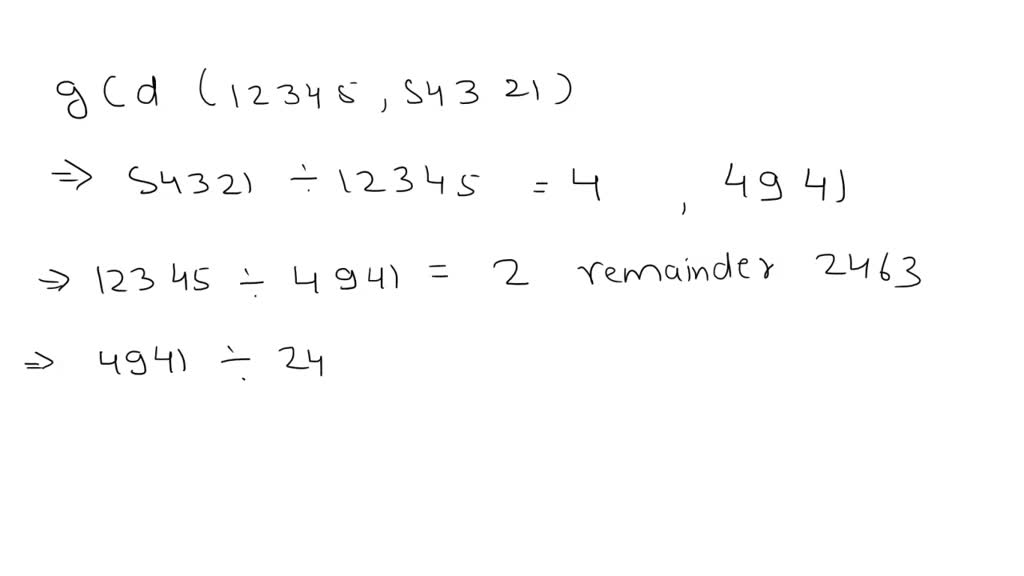 gcd (12345, 54321)
⇒ 54321 ÷ 12345 = 4 , 4941
⇒ 12345 ÷ 4941 = 2 remainder 2463
⇒ 4941 ÷ 24